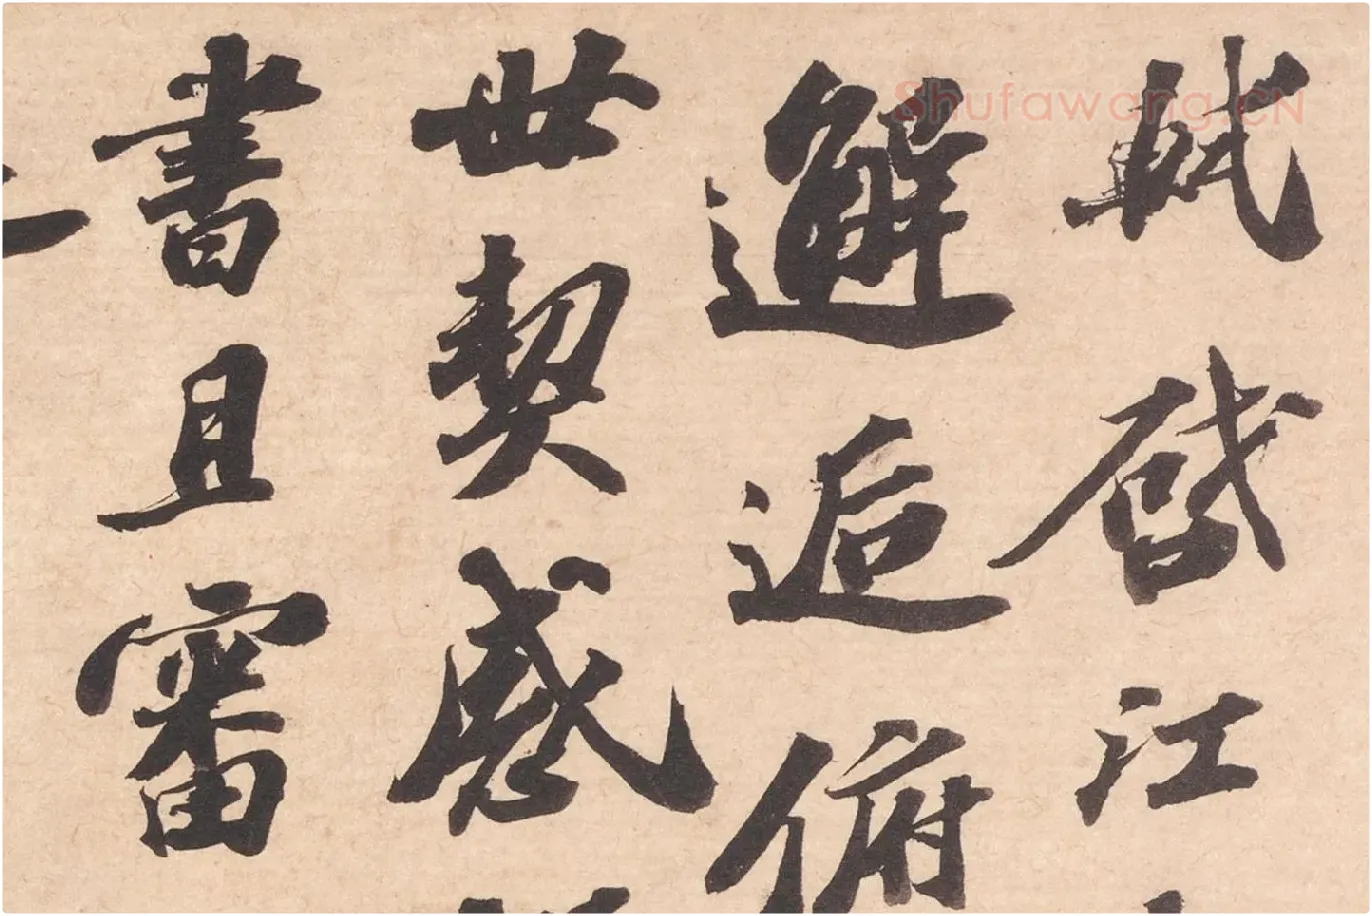 軾啓江
邂逅俯
世契感
書且審
Shufawang.CN